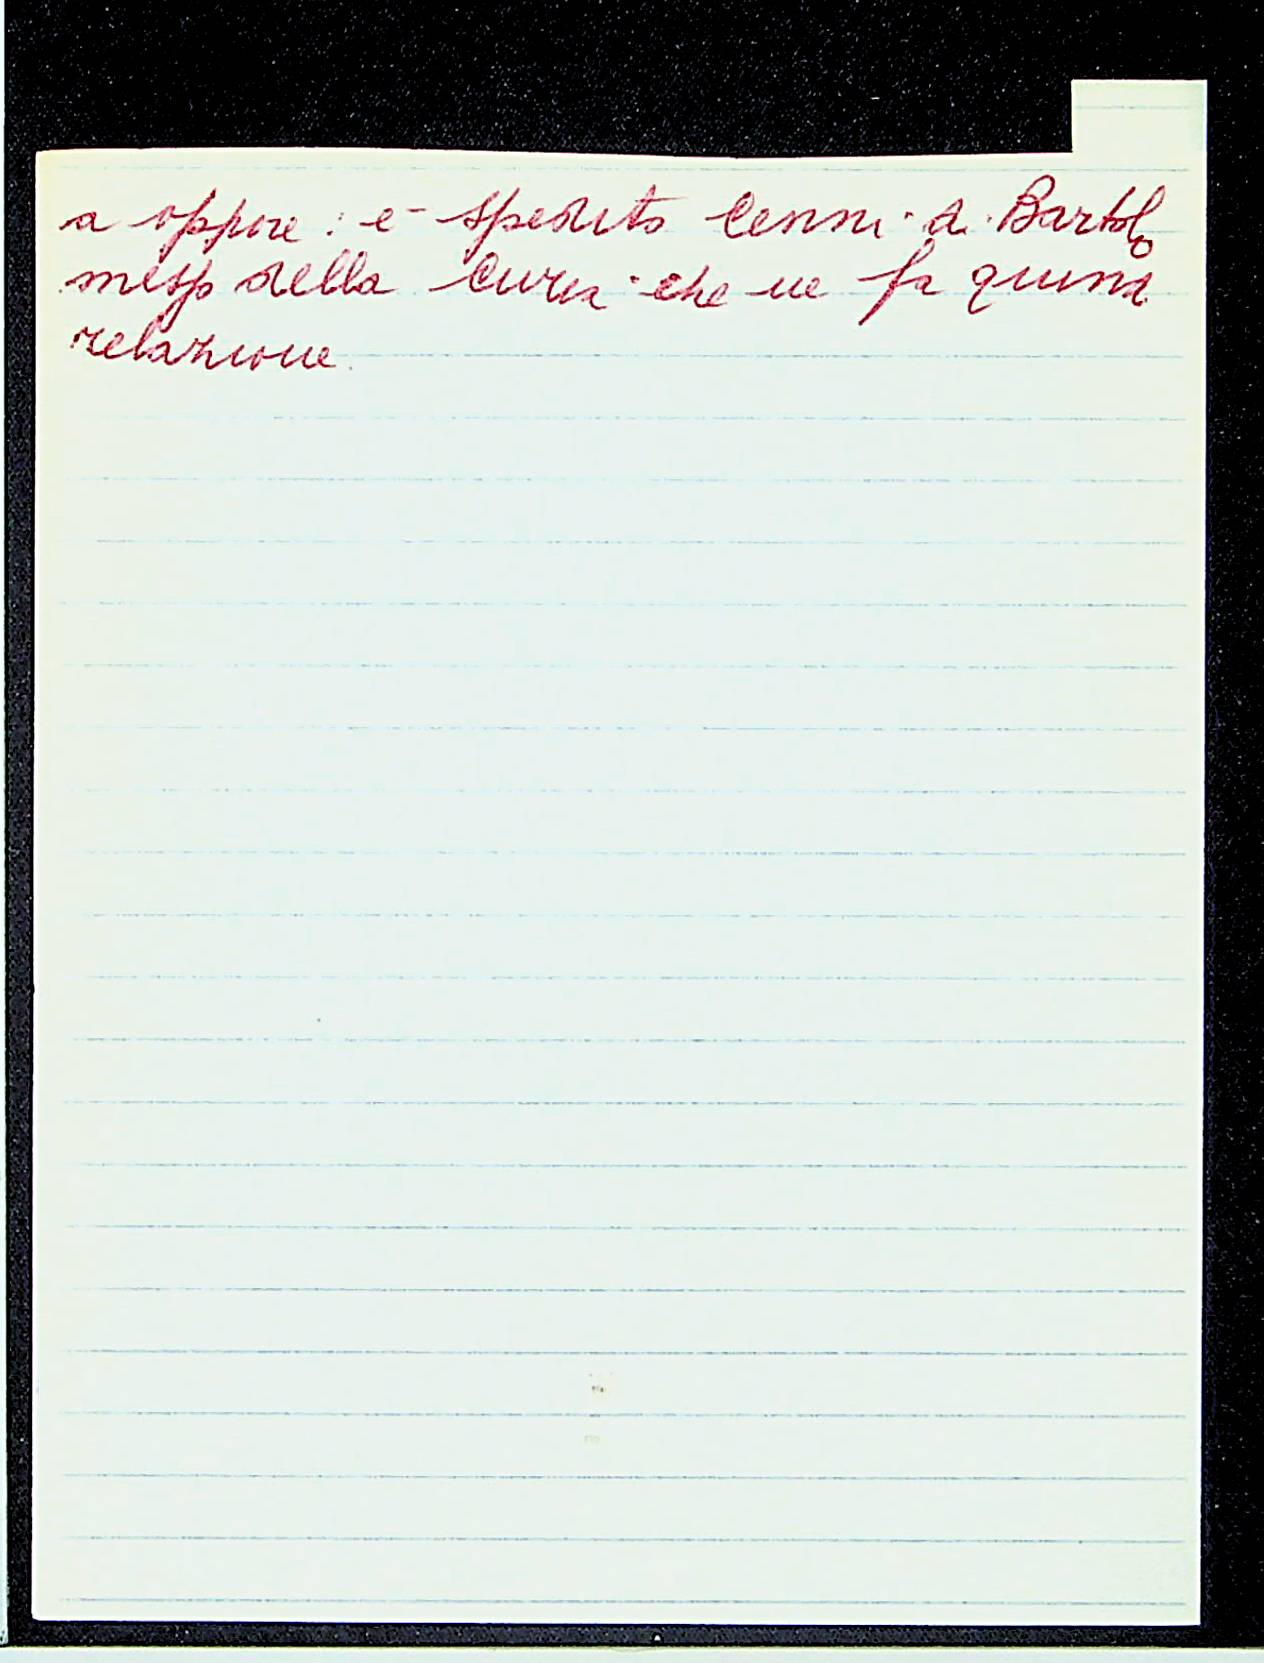 a oppore : e- spedito Cenni di Bartolo
messo della Curia che ne fa quindi
relazione.